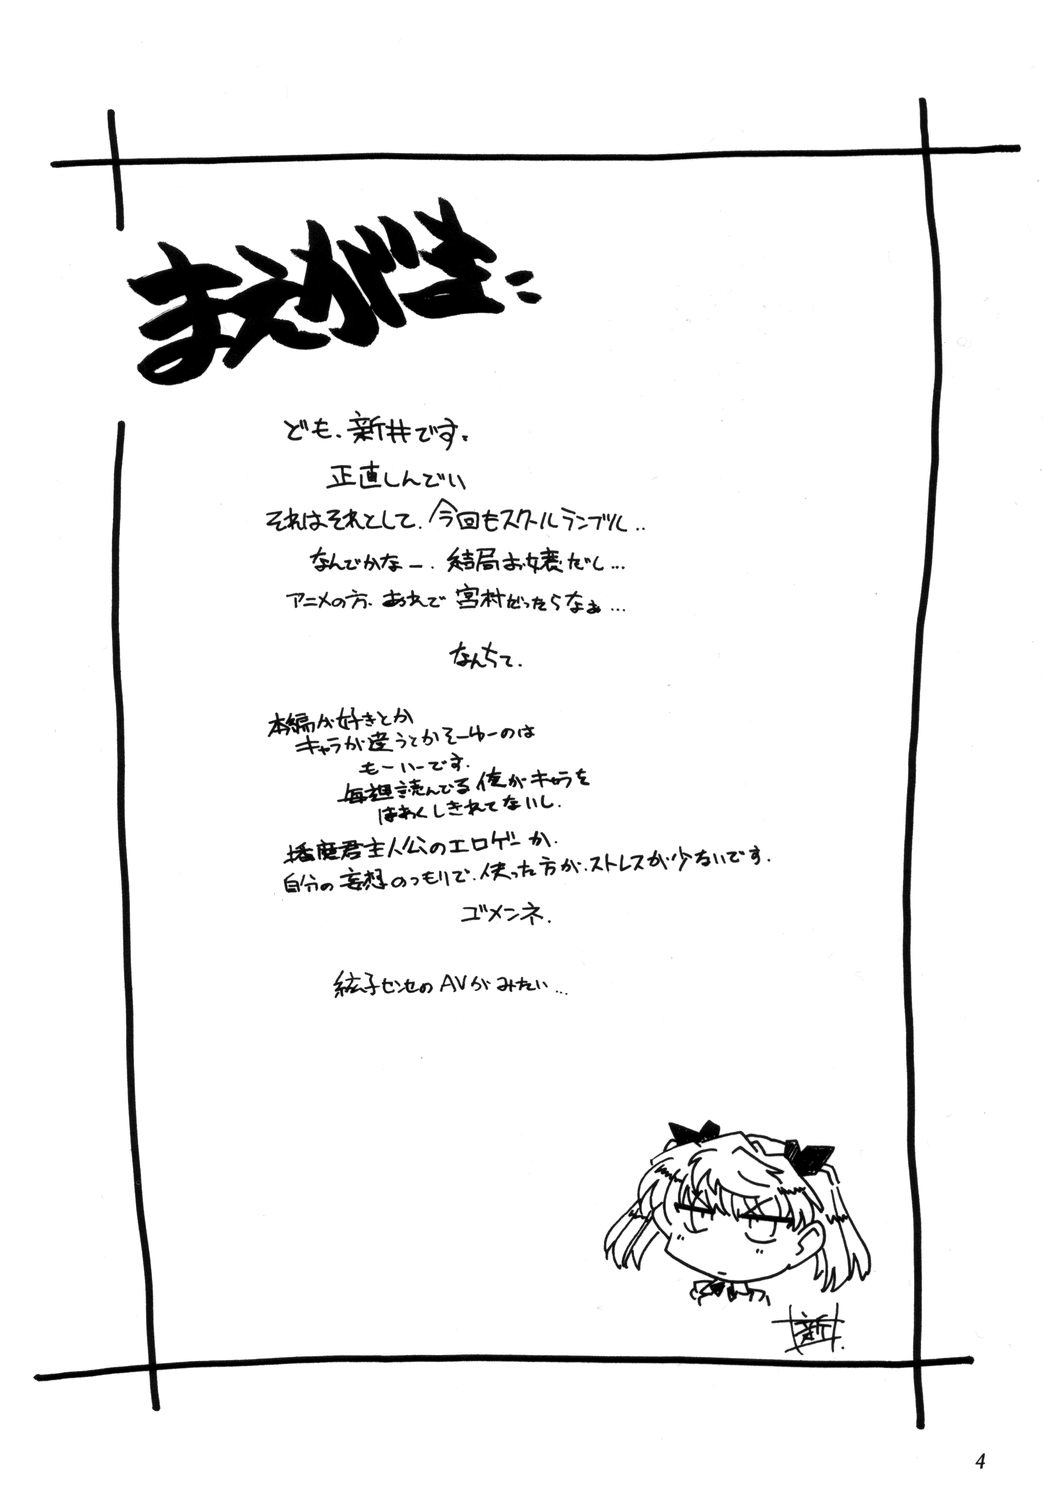 まえがき:
ども、新井です。
正直しんでい
それはそれとして、今回もスクールランブル..
なんでかなー、結局お嬢だし...
アニメの方、あれで宮村だったらなぁ...
なんちて.
本編が好きとか
キャラが違うとかそーゆーのは
もーいーです.
毎週読んでる俺がキャラを
はあくしきれてないし.
播磨君主人公のエロゲーか、
自分の妄想のつもりで、使った方が、ストレスが少ないです.
ゴメンネ.
絃子センセのAVがみたい...
新井.
4